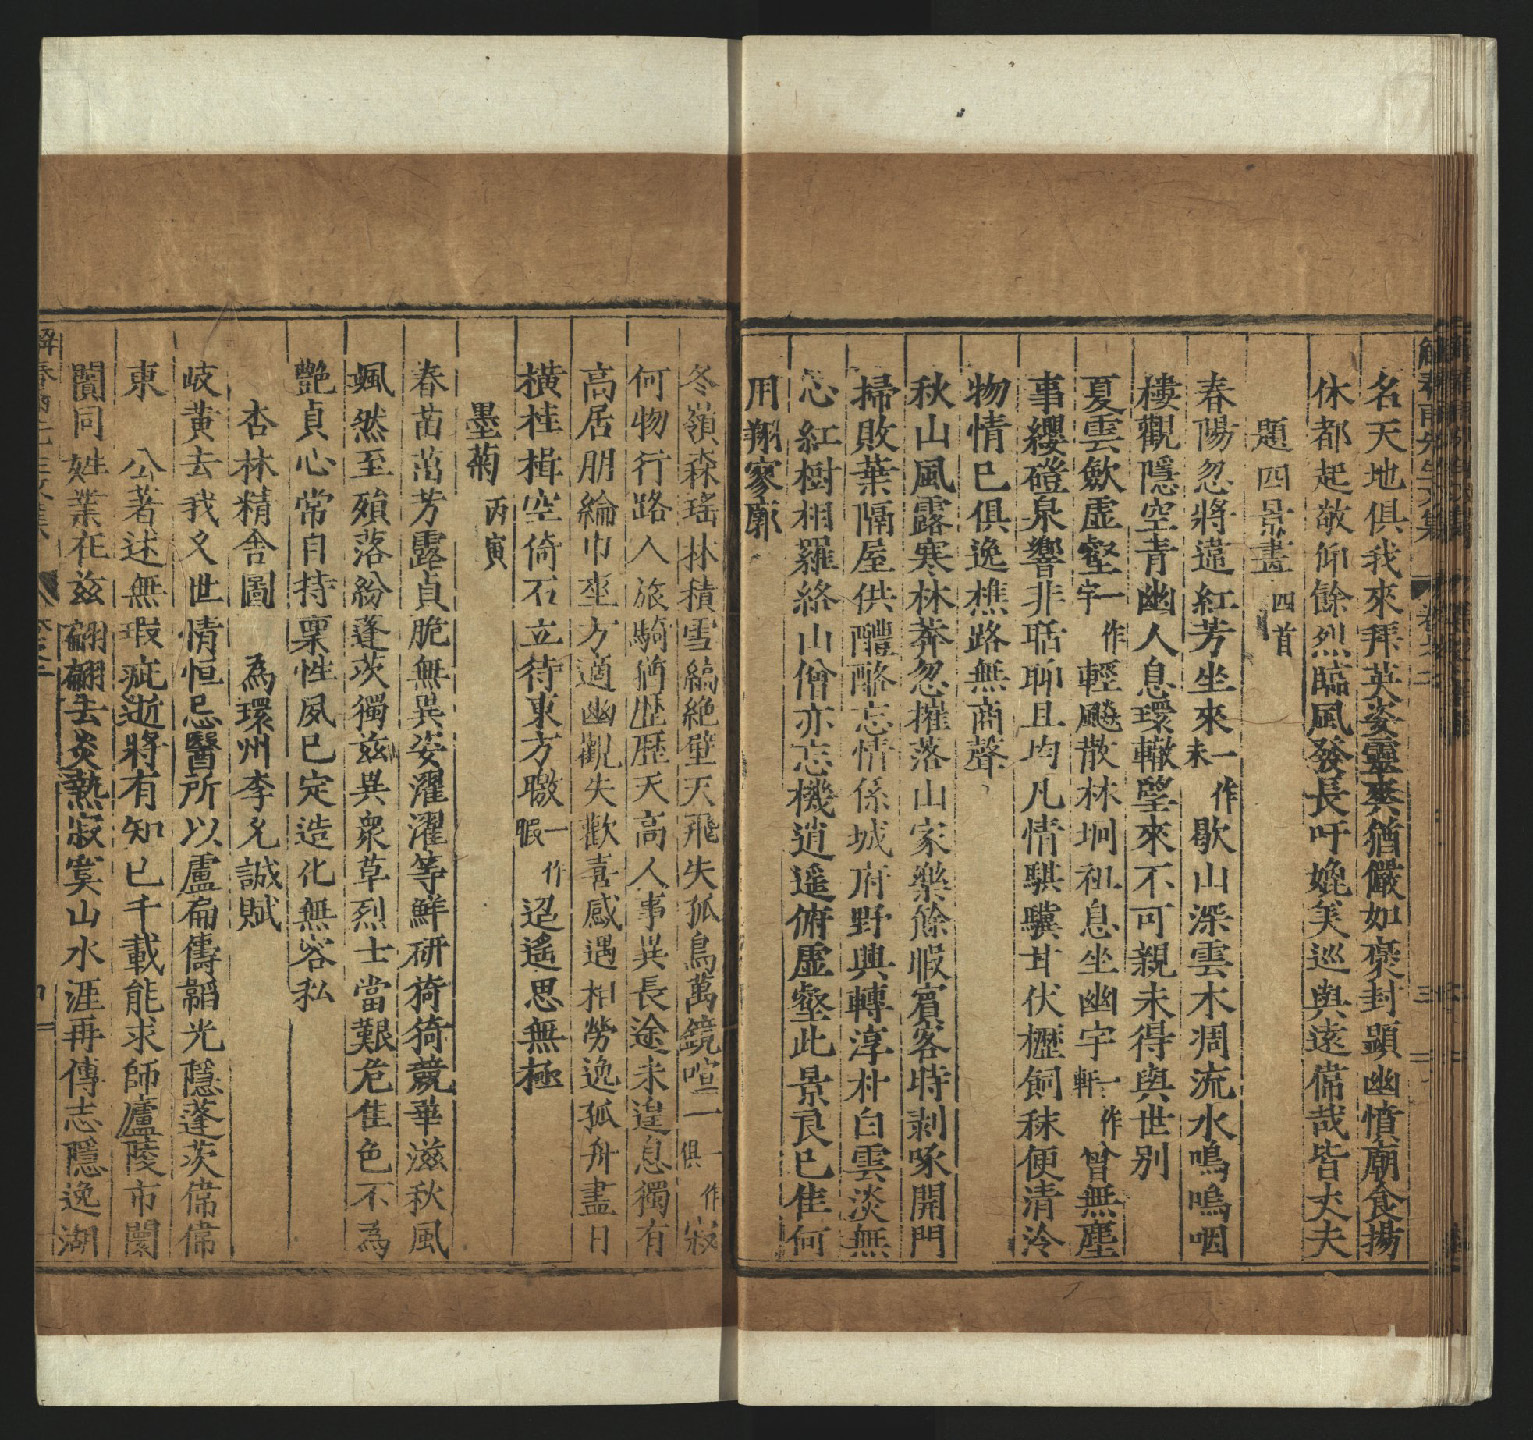 名天地俱我來拜英姿靈爽猶儼如褒封顯幽憤廟食揚
休都起敬仰餘烈臨風發長吁媲美巡與遠偹哉皆夫夫
題四景畫四首
春陽忽將邁紅芳坐來一作未歇山深雲木凋流水鳴嗚咽
樓觀隱空青幽人息環轍望來不可親未得與世别
夏雲歛虛壑一作宇輕飈散林坰祖息坐幽宇一作軒曾無塵
事纓磴泉響非聒聊且均凡情騏驥甘伏櫪飼秣便清泠
物情已俱逸樵路無商聲
秋山風露寒林莽忽摧落山家樂餘暇賓客時剥啄開門
掃敗葉隔屋供醴酪忘情係城府野興轉淳朴白雲淡無
心紅樹相羅絡山僧亦忘機逍遥俯虛壑此景良已隹何
用翔寥廓
冬嶺森瑤林積雪縞絶壁天飛失孤鳥萬鏡喧一一作俱寂
何物行路人旅騎猶歷歷天高人事異長途未遑息獨有
高居朋綸巾坐方適幽觀失歡喜感遇相勞逸孤舟盡日
横桂楫空倚石立待東方暾一作暇迢遙思無極
墨菊丙寅
春苗茁芳露貞脆無異姿濯濯等鮮研猗猗競華滋秋風
颯然至殞落紛蓬茨獨兹異衆草烈士當艱危隹色不為
艷貞心常自持稟性夙已定造化無容私
杏林精舍圖　為環州李允誠賦
岐黄去我久世情恒忌醫所以盧扁儔韜光隱蓬茨偹偹
東　公著述無瑕疵逝將有知已千載能求師廬陵市闤
闠同姓業在兹翩翩去炎熱寂寞山水涯再傳志隱逸湖